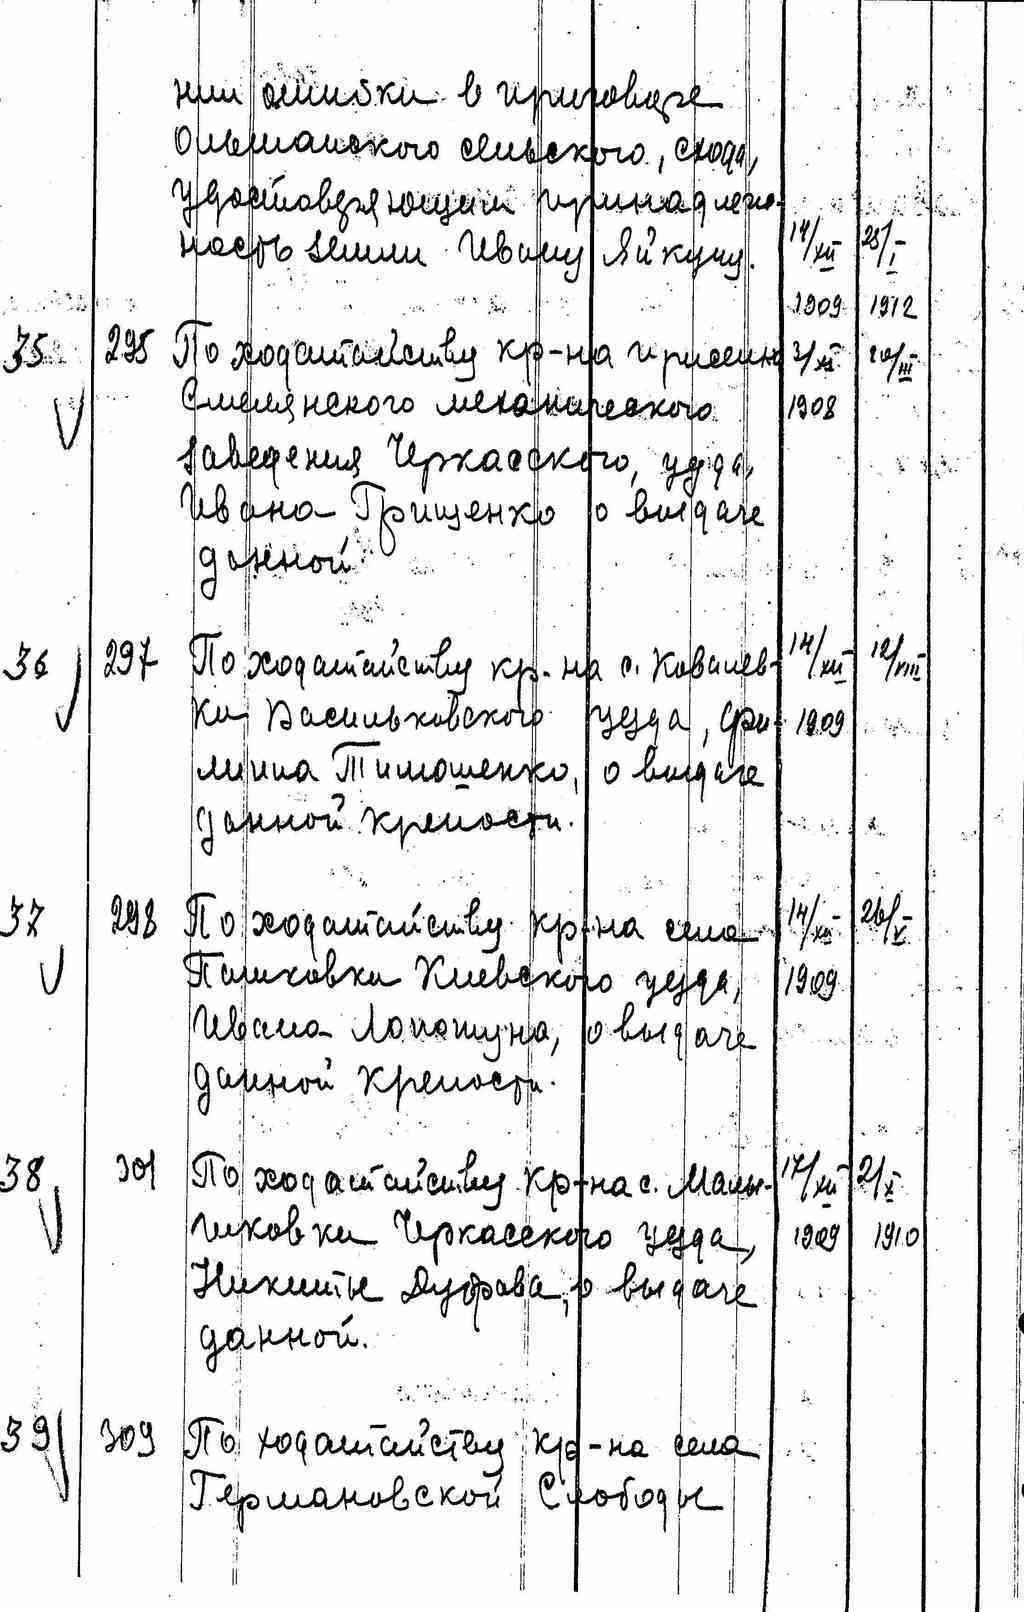 нии ошибки в приговоре
Ольшанского сельского, схода,
удостоверяющим принадлеж-
ность земли Ивану Яйкуну. 14/XII 23/I
1909 1912
35 295 По ходатайству кр-на 3/XI 20/III
Смелянского механического 1908
заведения Черкасского, уезда,
Ивана Грищенко о выдаче
данной
36 297 По ходатайству кр-на с. Ковалев- 14/XII 12/VIII
ки Васильковского уезда, Фи- 1909
липпа Тимошенко, о выдаче
данной крепости.
37 298 По ходатайству кр-на села 14/XII 26/X
Пашковки Киевского уезда, 1909
Ивана Лопатуна, о выдаче
данной крепости.
38 301 По ходатайству кр-на с. Малы- 17/XII 2/X
шковки Черкасского уезда, 1909 1910
Никиты Дубрава, о выдаче
данной.
39 309 По ходатайству кр-на села
Германовской Слободы